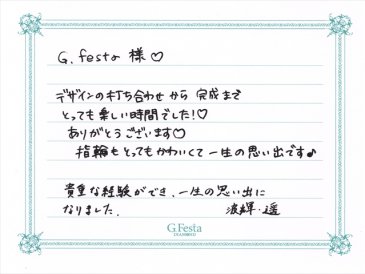 G. festa 様♡
デザインの打ち合わせから 完成まで
とっても楽しい時間でした!♡
ありがとうございます♡
指輪もとってもかわいくて一生の思い出です♪
貴重な経験ができ、一生の思い出に
なりました.
波輝・遥
G.Festa